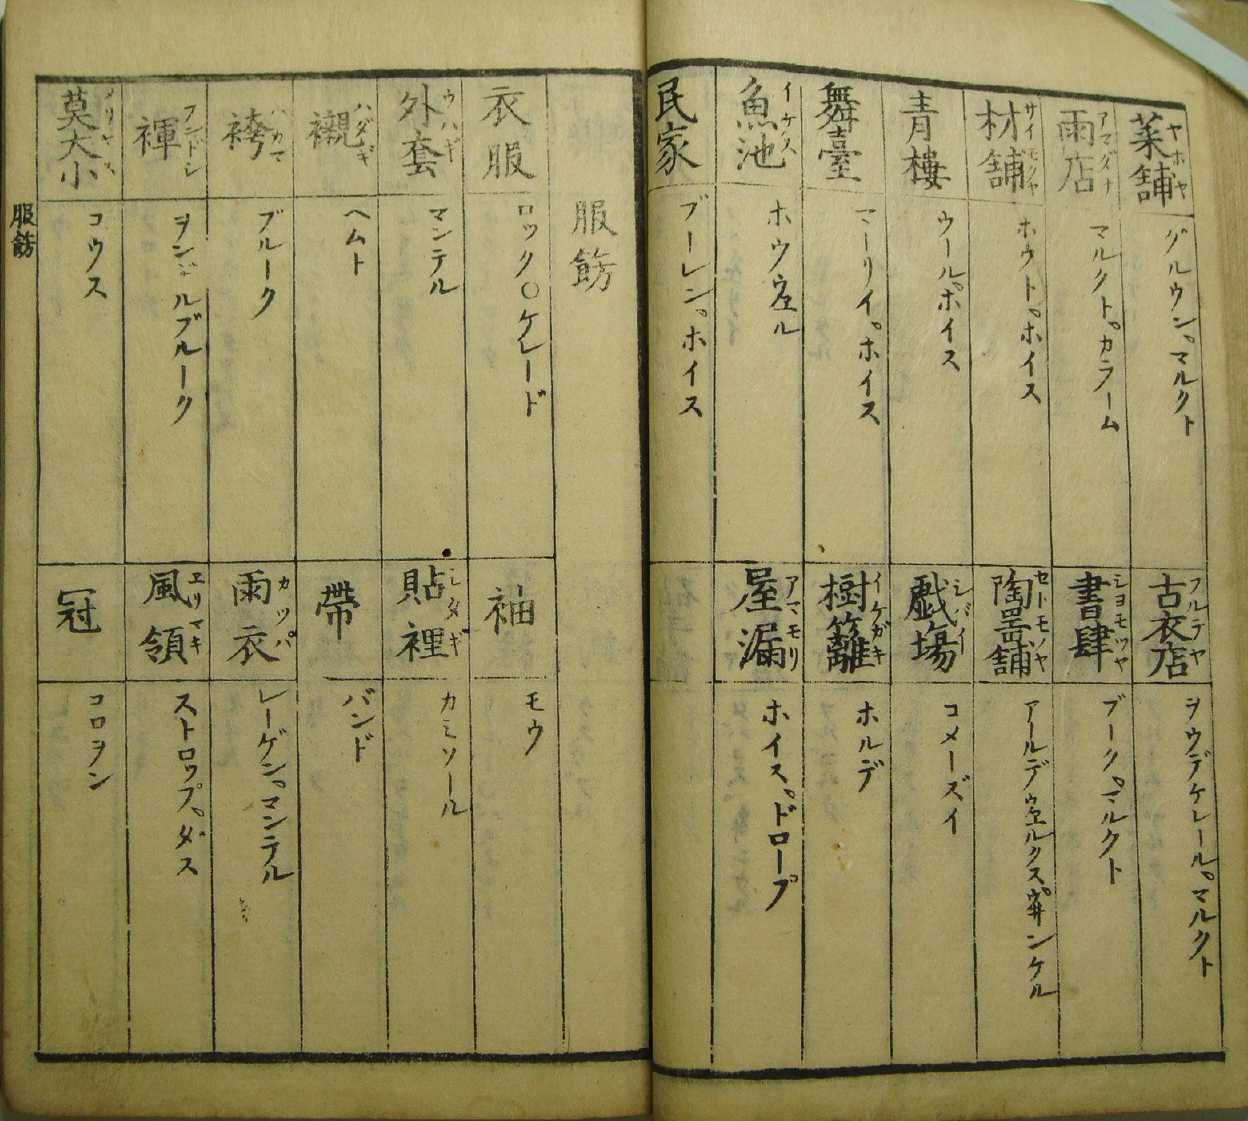 菜舗 ヤホヤ グルウン。マルクト
雨店 アマダナ マルクト。カラーム
材舗 サイモクヤ ホウト。ホイス
青樓 ウール。ホイス
舞臺 マーリイ。ホイス
魚池 イケス ホウウェル
民家 ブーレン。ホイス
古衣店 フルテヤ ヲウデケレール。マルクト
書肆 シヨモツヤ ブーク。マルクト
陶噐舗 セトモノヤ アールデウェルクス。ウ井ンケル
戯場 シバイ コメーズイ
樹籬 イケガキ ホルデ
屋漏 アマモリ ホイス。ドロープ
服飭
衣服 ロック〇ケレード
外套 ウハギ マンテル
襯 ハダギ ヘムト
袴 ハカマ ブルーク
褌 ヲンドルブルーク
莫大小 メリヤス コウス
袖 モウ
貼裡 シタギ カミソール
帶 バンド
雨衣 カッパ レーゲン。マンテル
風領 エリマキ ストロップ。ダス
冠 コロヲン
服飭